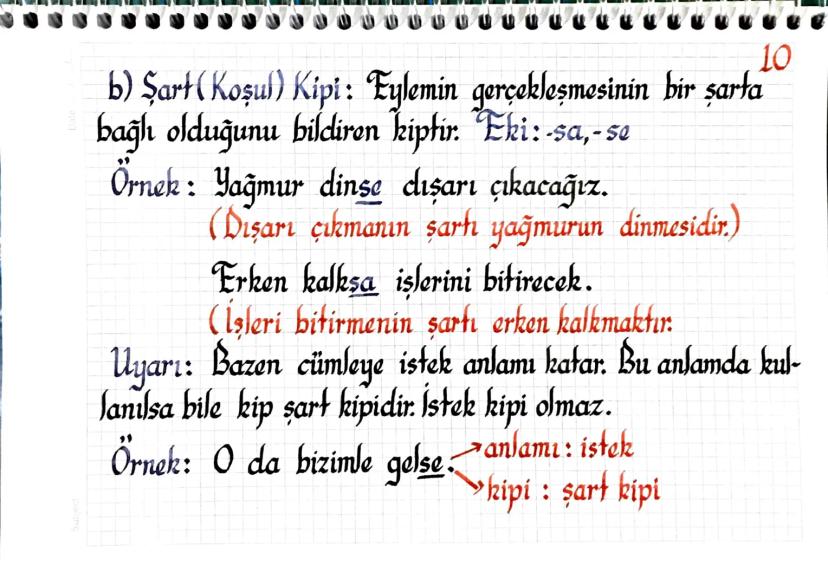 10
b) Şart (Koşul) Kipi: Eylemin gerçekleşmesinin bir şarta
bağlı olduğunu bildiren kiptir. Eki: -sa, -se
Örnek: Yağmur dinse dışarı çıkacağız.
(Dışarı çıkmanın şartı yağmurun dinmesidir.)
Erken kalksa işlerini bitirecek.
(İşleri bitirmenin şartı erken kalkmaktır.
Uyarı: Bazen cümleye istek anlamı katar. Bu anlamda kul-
lanılsa bile kip şart kipidir. İstek kipi olmaz.
Örnek: O da bizimle gelse. → anlamı: istek
→ kipi : şart kipi